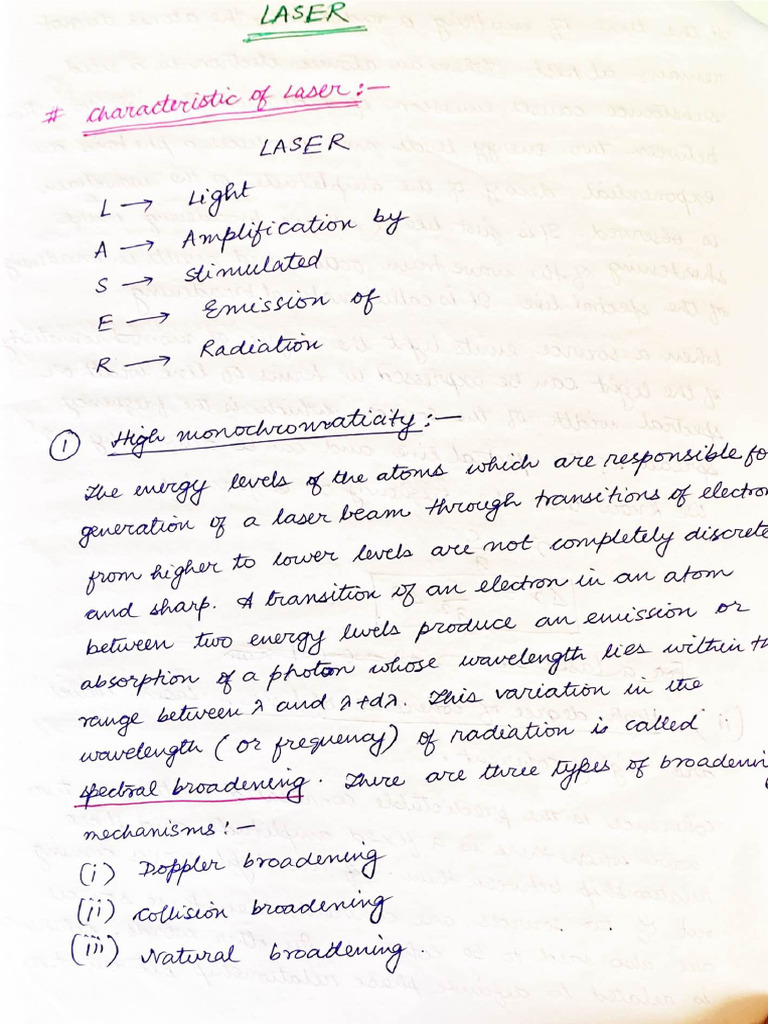 LASER
# Characteristic of Laser:-
LASER
L → Light
A → Amplification by
S → Stimulated
E → Emission of
R → Radiation
① High monochromaticity:-
The energy levels of the atoms which are responsible fo
generation of a laser beam through transitions of electron
from higher to lower levels are not completely discrete
and sharp. A transition of an electron in an atom
between two energy levels produce an emission or
absorption of a photon whose wavelength lies within th
range between λ and λ+dλ. This variation in the
wavelength (or frequency) of radiation is called
spectral broadening. There are three types of broadenin
mechanisms:-
(i) Doppler broadening
(ii) Collision broadening
(iii) Natural broadening.